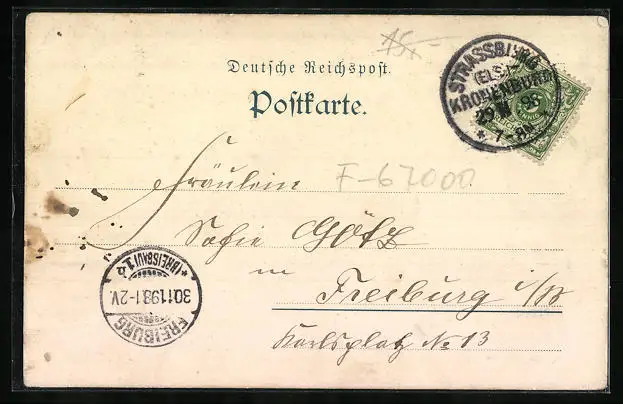 15,-
Deutsche Reichspost.
Postkarte.
STRASSBURG
(ELS.)
KRONENBURG
29 98
7-8N
Fräulein
F-67000
Sofie Götz
in
Freiburg i/B
Karlsplatz No 13
FREIBURG
30.11.98.1-2V.
*(BREISGAU)1a